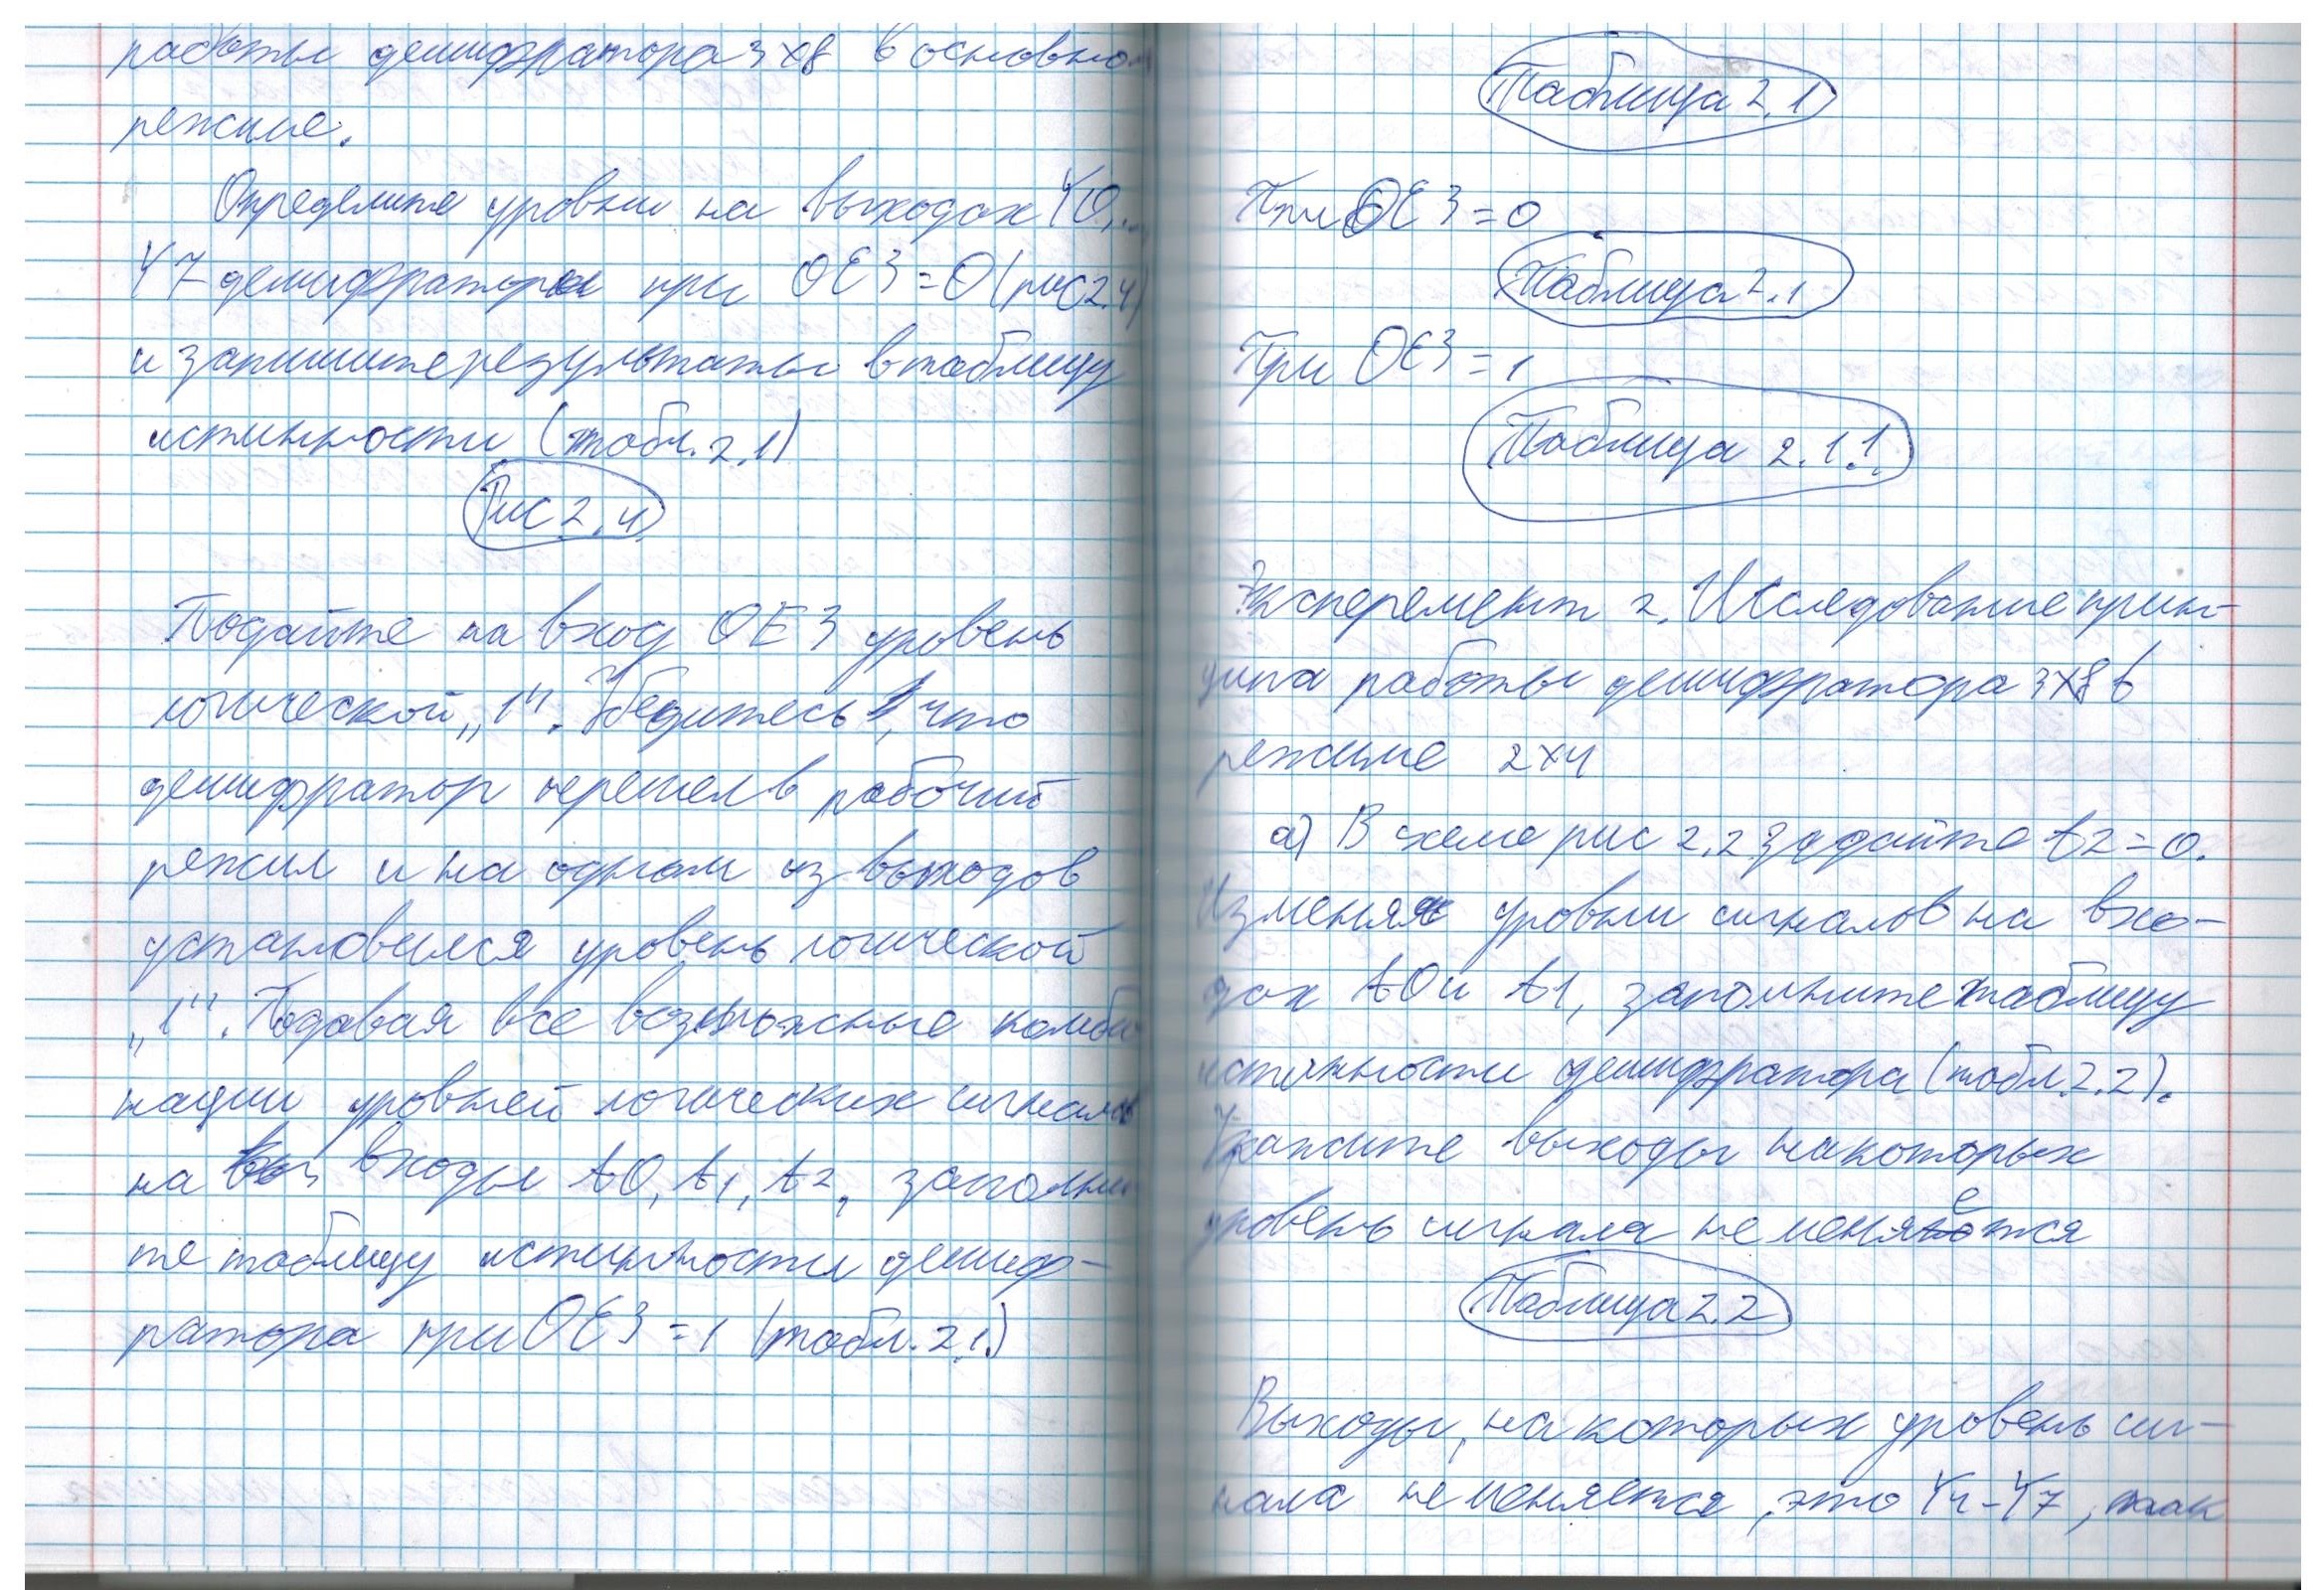 работы дешифратора 3х8 в основном
режиме.
Определите уровни на выходах Y0,..
Y7 дешифратора при OE3=0 (рис 2.4)
и запишите результаты в таблицу
истинности (табл. 2.1)
Рис 2.4
Подайте на вход OE3 уровень
логической „1". Убедитесь, что
дешифратор перешел в рабочий
режим и на одном из выходов
установился уровень логической
„1". Подавая все возможные комби
нации уровней логических сигналов
на входы A0, A1, A2, заполни
те таблицу истинности дешиф-
ратора при OE3=1 (табл. 2.1.)
Таблица 2.1
При OE3=0
Таблица 2.1
При OE3=1
Таблица 2.1.1.
Эксперемент 2. Исследование прин-
ципа работы дешифратора 3х8 в
режиме 2х4
а) В схеме рис 2.2 задайте A2=0.
Изменяя уровни сигналов на вхо-
дах A0 и A1, заполните таблицу
истинности дешифратора (табл. 2.2).
Укажите выходы на которых
уровень сигнала не меняется
Таблица 2.2
Выходы, на которых уровень сиг-
нала не меняется, это Y4-Y7, так